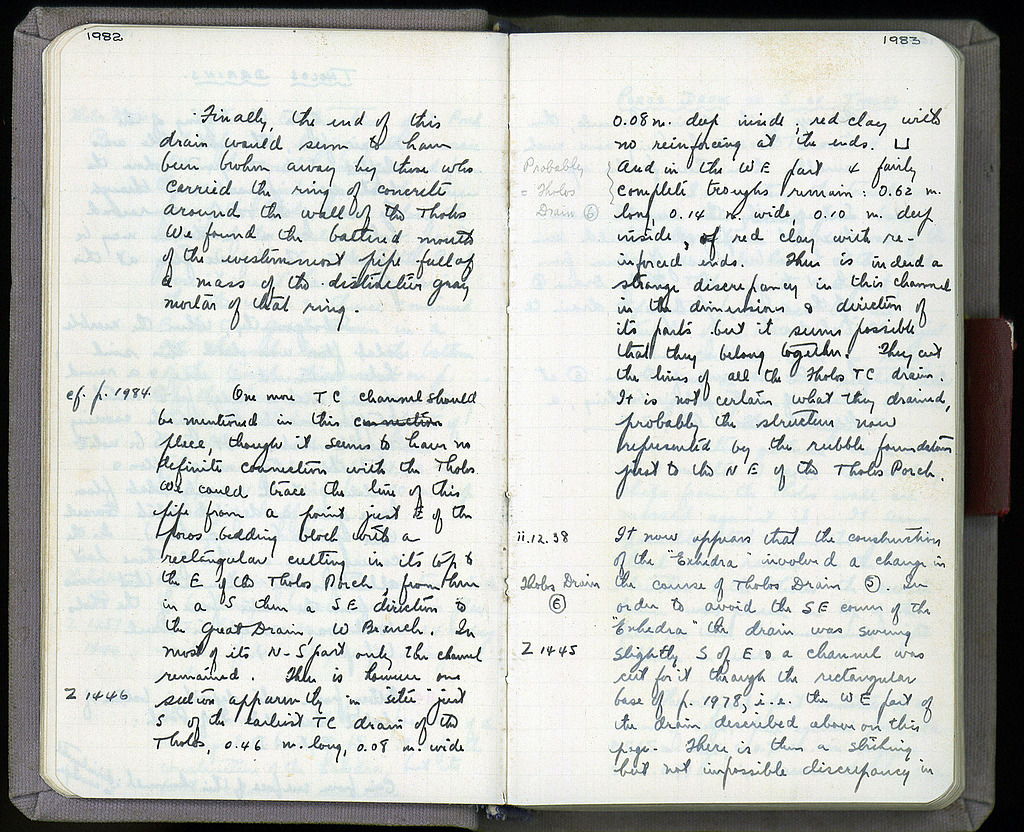 1982
Finally, the end of this
drain would seem to have
been broken away by those who
carried the ring of concrete
around the wall of the Tholos
We found the battered mouth
of the westernmost pipe full of
a mass of the distinctive gray
mortar of that ring.
cf. p. 1984. One more TC channel should
be mentioned in this connection
place, though it seems to have no
definite connection with the Tholos.
We could trace the line of this
pipe from a point just E of the
poros bedding block with a
rectangular cutting in its top to
the E of the Tholos Porch, from there
in a S then a SE direction to
the Great Drain, W Branch. In
most of its N-S part only the channel
remained. There is however one
Σ 1446 section apparently in situ just
S of the earliest TC drain of the
Tholos, 0.46 m. long, 0.08 m. wide
1983
0.08 m. deep inside, red clay with
no reinforcing at the ends. ⊔
Probably And in the WE part 4 fairly
= Tholos complete troughs remain: 0.62 m.
Drain ⑥ long, 0.14 m. wide, 0.10 m. deep
inside, of red clay with re-
inforced ends. There is indeed a
strange discrepancy in this channel
in the dimensions & direction of
its parts but it seems possible
that they belong together. They cut
the lines of all the Tholos TC drains.
It is not certain what they drained,
probably the structure now
represented by the rubble foundations
just to the NE of the Tholos Porch.
11.12.38 It now appears that the construction
of the "Exhedra" involved a change in
Tholos Drain the course of Tholos Drain ⑤. In
⑥ order to avoid the SE corner of the
"Exhedra" the drain was swung
Σ 1445 slightly S of E & a channel was
cut for it through the rectangular
base of p. 1978, i.e. the WE part of
the drain described above on this
page. There is thus a striking
but not impossible discrepancy in